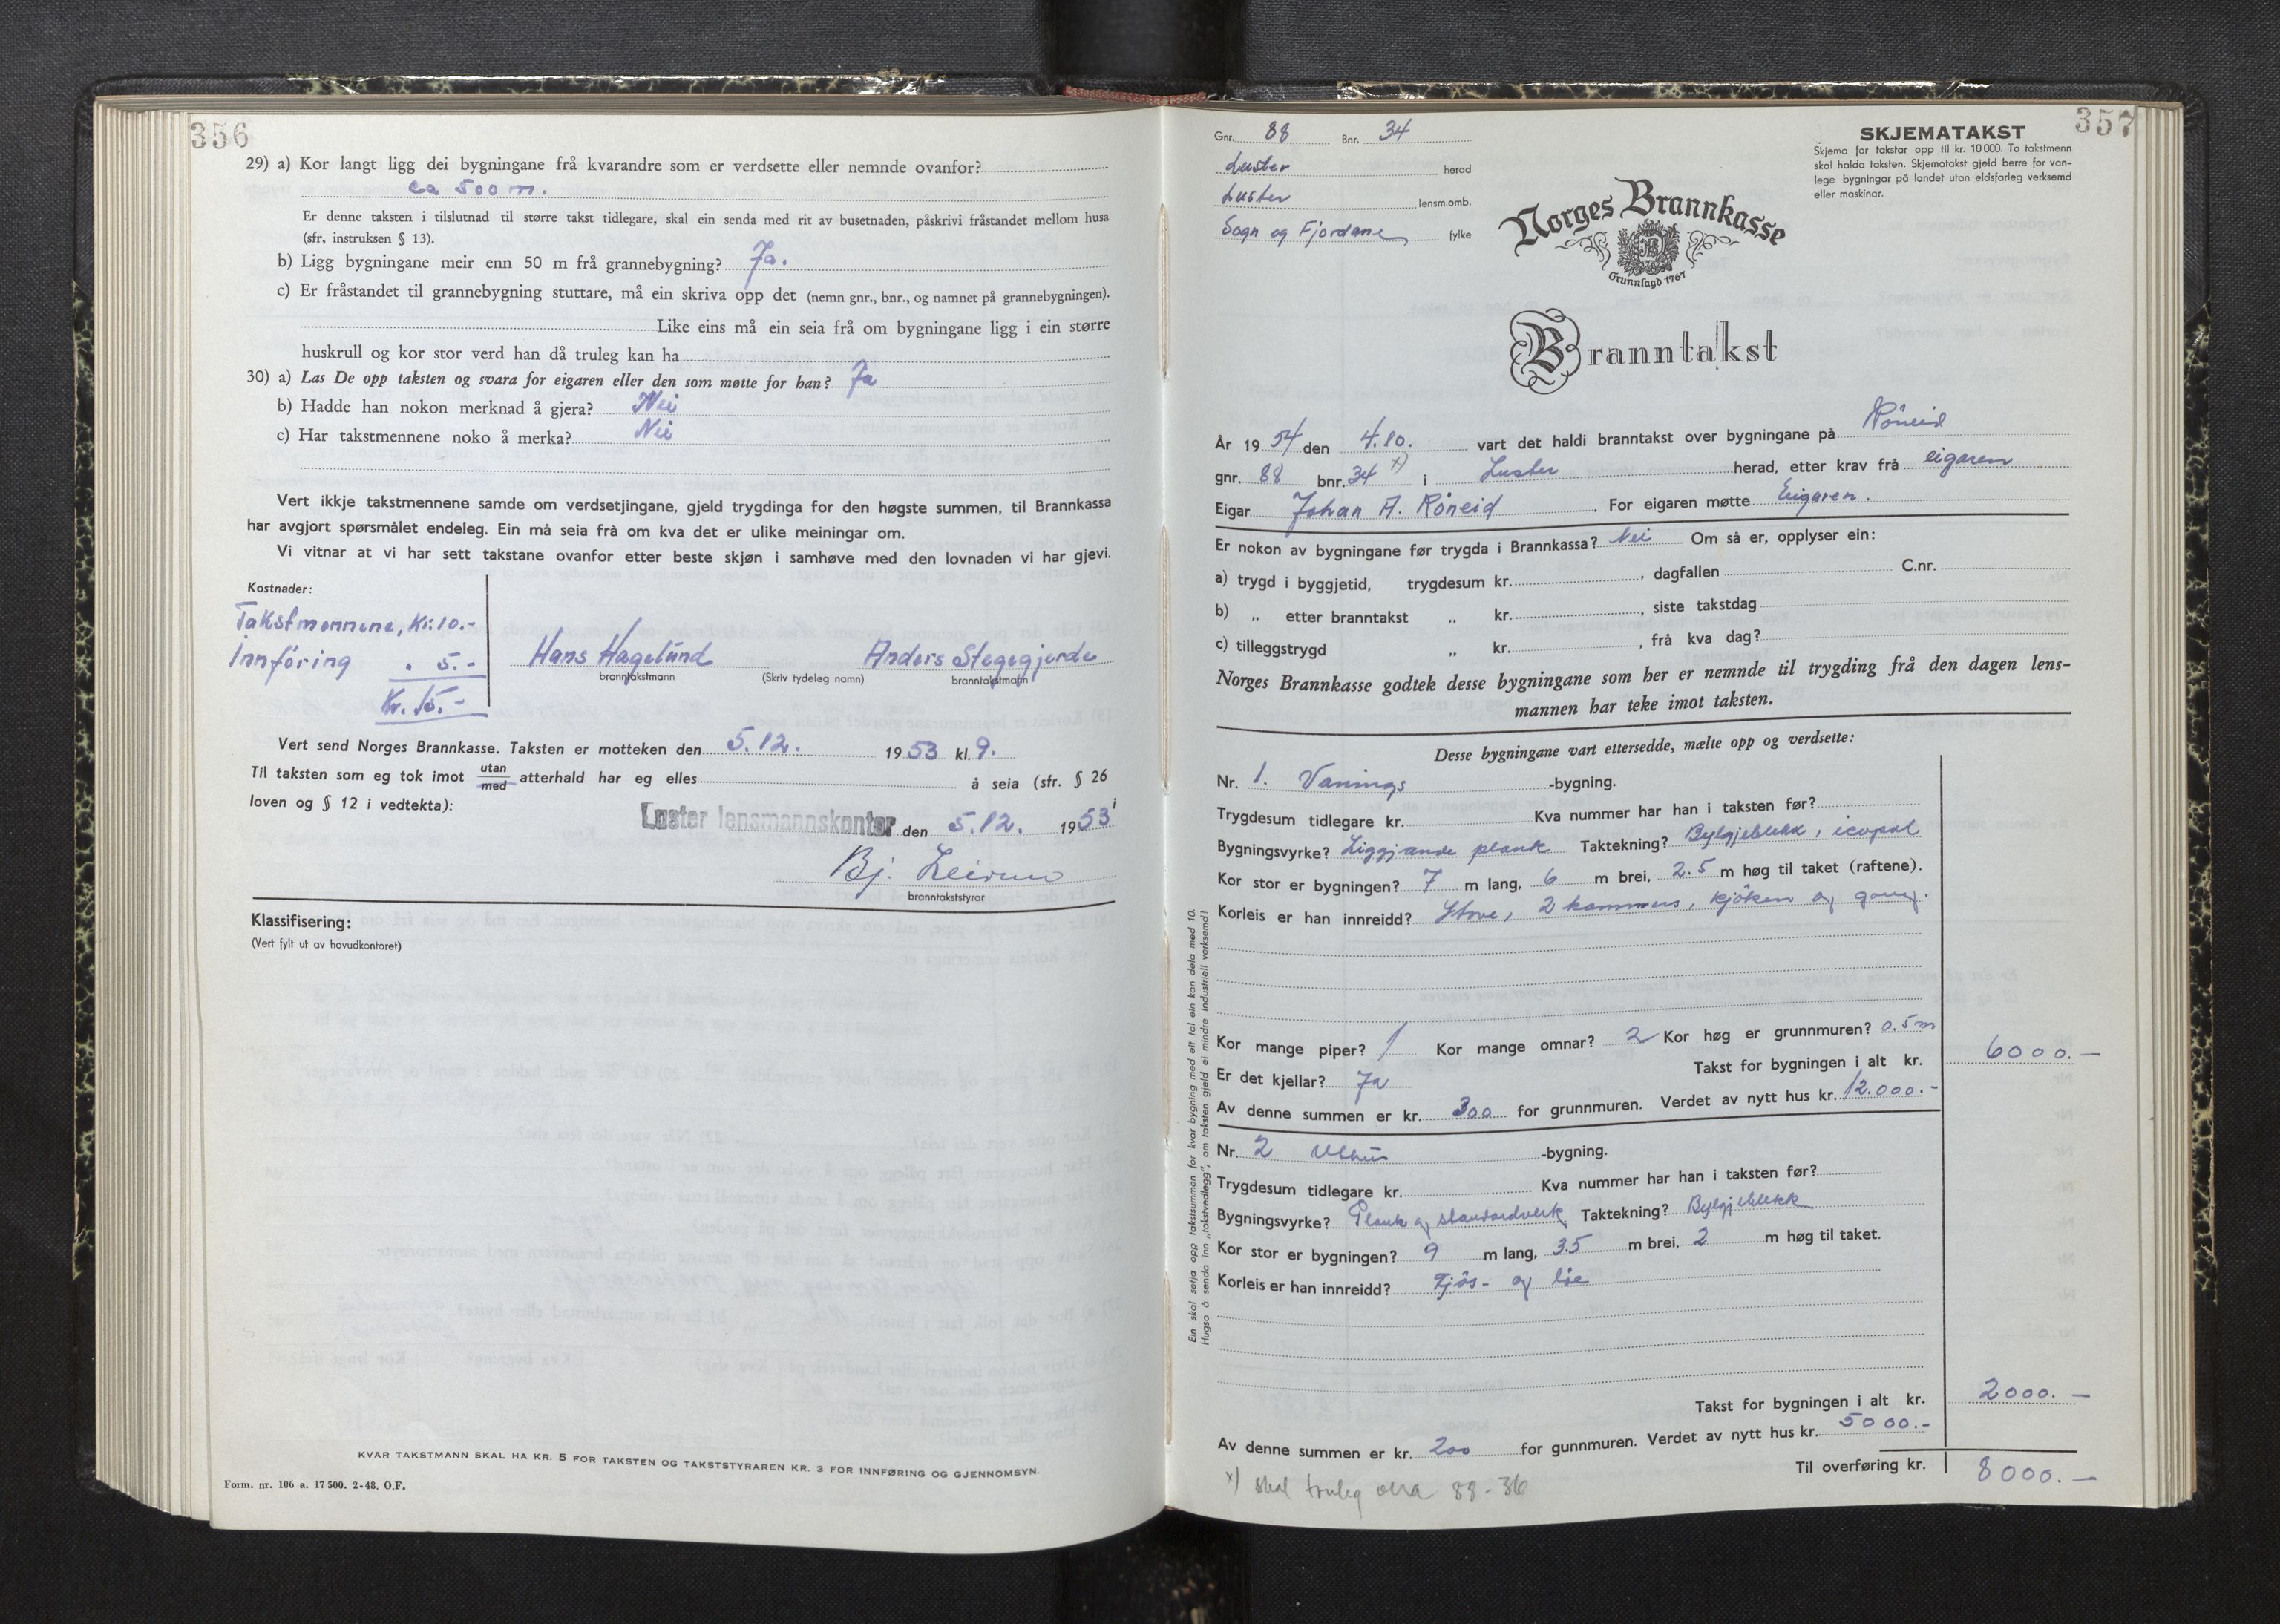 356
29) a) Kor langt ligg dei bygningane frå kvarandre som er verdsette eller nemnde ovanfor?
ca 500 m.
Er denne taksten i tilslutnad til større takst tidlegare, skal ein senda med rit av busetnaden, påskrivi fråstandet mellom husa
(sfr, instruksen § 13).
b) Ligg bygningane meir enn 50 m frå grannebygning? Ja.
c) Er fråstandet til grannebygning stuttare, må ein skriva opp det (nemn gnr., bnr., og namnet på grannebygningen).
Like eins må ein seia frå om bygningane ligg i ein større
huskrull og kor stor verd han då truleg kan ha
30) a) Las De opp taksten og svara for eigaren eller den som møtte for han? Ja
b) Hadde han nokon merknad å gjera? Nei
c) Har takstmennene noko å merka? Nei
Vert ikkje takstmennene samde om verdsetjingane, gjeld trygdinga for den høgste summen, til Brannkassa
har avgjort spørsmålet endeleg. Ein må seia frà om kva det er ulike meiningar om.
Vi vitnar at vi har sett takstane ovanfor etter beste skjøn i samhøve med den lovnaden vi har gjevi.
Kostnader:
Takstmennene, Kr. 10.-
Innföring " 5.-
Kr. 15.-
Hans Hagelund Anders Stegegjerde
branntakstmann (Skriv tydeleg namn) branntakstmann
Vert send Norges Brannkasse. Taksten er motteken den 5.12. 1953 kl. 9.
Til taksten som eg tok imot utan/med atterhald har eg elles å seia (sfr. § 26
loven og § 12 i vedtekta):
Luster lensmannskontor den 5.12. 1953
Bj. Leirmo
branntakststyrar
Klassifisering:
(Vert fylt ut av hovudkontoret)
KVAR TAKSTMANN SKAL HA KR. 5 FOR TAKSTEN OG TAKSTSTYRAREN KR. 3 FOR INNFØRING OG GJENNOMSYN.
Form. nr. 106 a. 17 500. 2-48. O.F.
357
Gnr. 88 Bnr. 34
Luster herad
Luster lensm.omb.
Sogn og Fjordane fylke
SKJEMATAKST
Skjema for takstar opp til kr. 10 000. To takstmenn
skal halda taksten. Skjematakst gjeld berre for van-
lege bygningar på landet utan eldsfarleg verksemd
eller maskinar.
Norges Brannkasse
Grunnlagd 1767
Branntakst
År 1954 den 4.10. vart det haldi branntakst over bygningane på Röneid
gnr. 88 bnr. 34 x) i Luster herad, etter krav frå eigaren
Eigar Johan A. Röneid. For eigaren møtte Eigaren.
Er nokon av bygningane før trygda i Brannkassa? Nei Om så er, opplyser ein:
a) trygd i byggjetid, trygdesum kr. , dagfallen C.nr.
b) „ etter branntakst „ kr. , siste takstdag
c) tilleggstrygd „ kr. , frå kva dag?
Norges Brannkasse godtek desse bygningane som her er nemnde til trygding frå den dagen lens-
mannen har teke imot taksten.
Desse bygningane vart ettersedde, mælte opp og verdsette:
Nr. 1. Vanings -bygning.
Trygdesum tidlegare kr. Kva nummer har han i taksten før?
Bygningsvyrke? Liggjande plank Taktekning? Bylgjeblekk, icopal
Kor stor er bygningen? 7 m lang, 6 m brei, 2.5 m høg til taket (raftene).
Korleis er han innreidd? Stove, 2 kammers, kjöken og gang.
Kor mange piper? 1 Kor mange omnar? 2 Kor høg er grunnmuren? 0.5 m
Er det kjellar? Ja Takst for bygningen i alt kr. 6000.-
Av denne summen er kr. 300 for grunnmuren. Verdet av nytt hus kr. 12.000.-
Nr. 2 Uthus -bygning.
Trygdesum tidlegare kr. Kva nummer har han i taksten før?
Bygningsvyrke? Plank og standardverk Taktekning? Bylgjeblekk
Kor stor er bygningen? 9 m lang, 3.5 m brei, 2 m høg til taket.
Korleis er han innreidd? Fjös- og löe
Takst for bygningen i alt kr. 2000.-
Av denne summen er kr. 200 for gunnmuren. Verdet av nytt hus kr. 5000.-
Til overføring kr. 8000.-
x) skal truleg vera 88-36
Ein skal setja opp takstsummen for kvar bygning med eit tal ein kan dela med 10.
Hugsa å senda inn „takstvedlegg", om taksten gjeld ei mindre industriell verksemd!